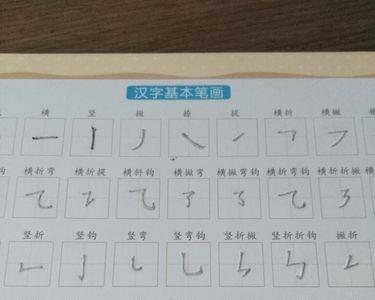 汉字基本笔画
横 竖 撇 捺 提 横折 横撇
横折弯 横折提 横斜钩 横撇弯 横撇弯钩 横折弯钩 横折折撇
竖折 竖钩 竖弯 竖弯钩 竖折撇 竖折折钩 撇折